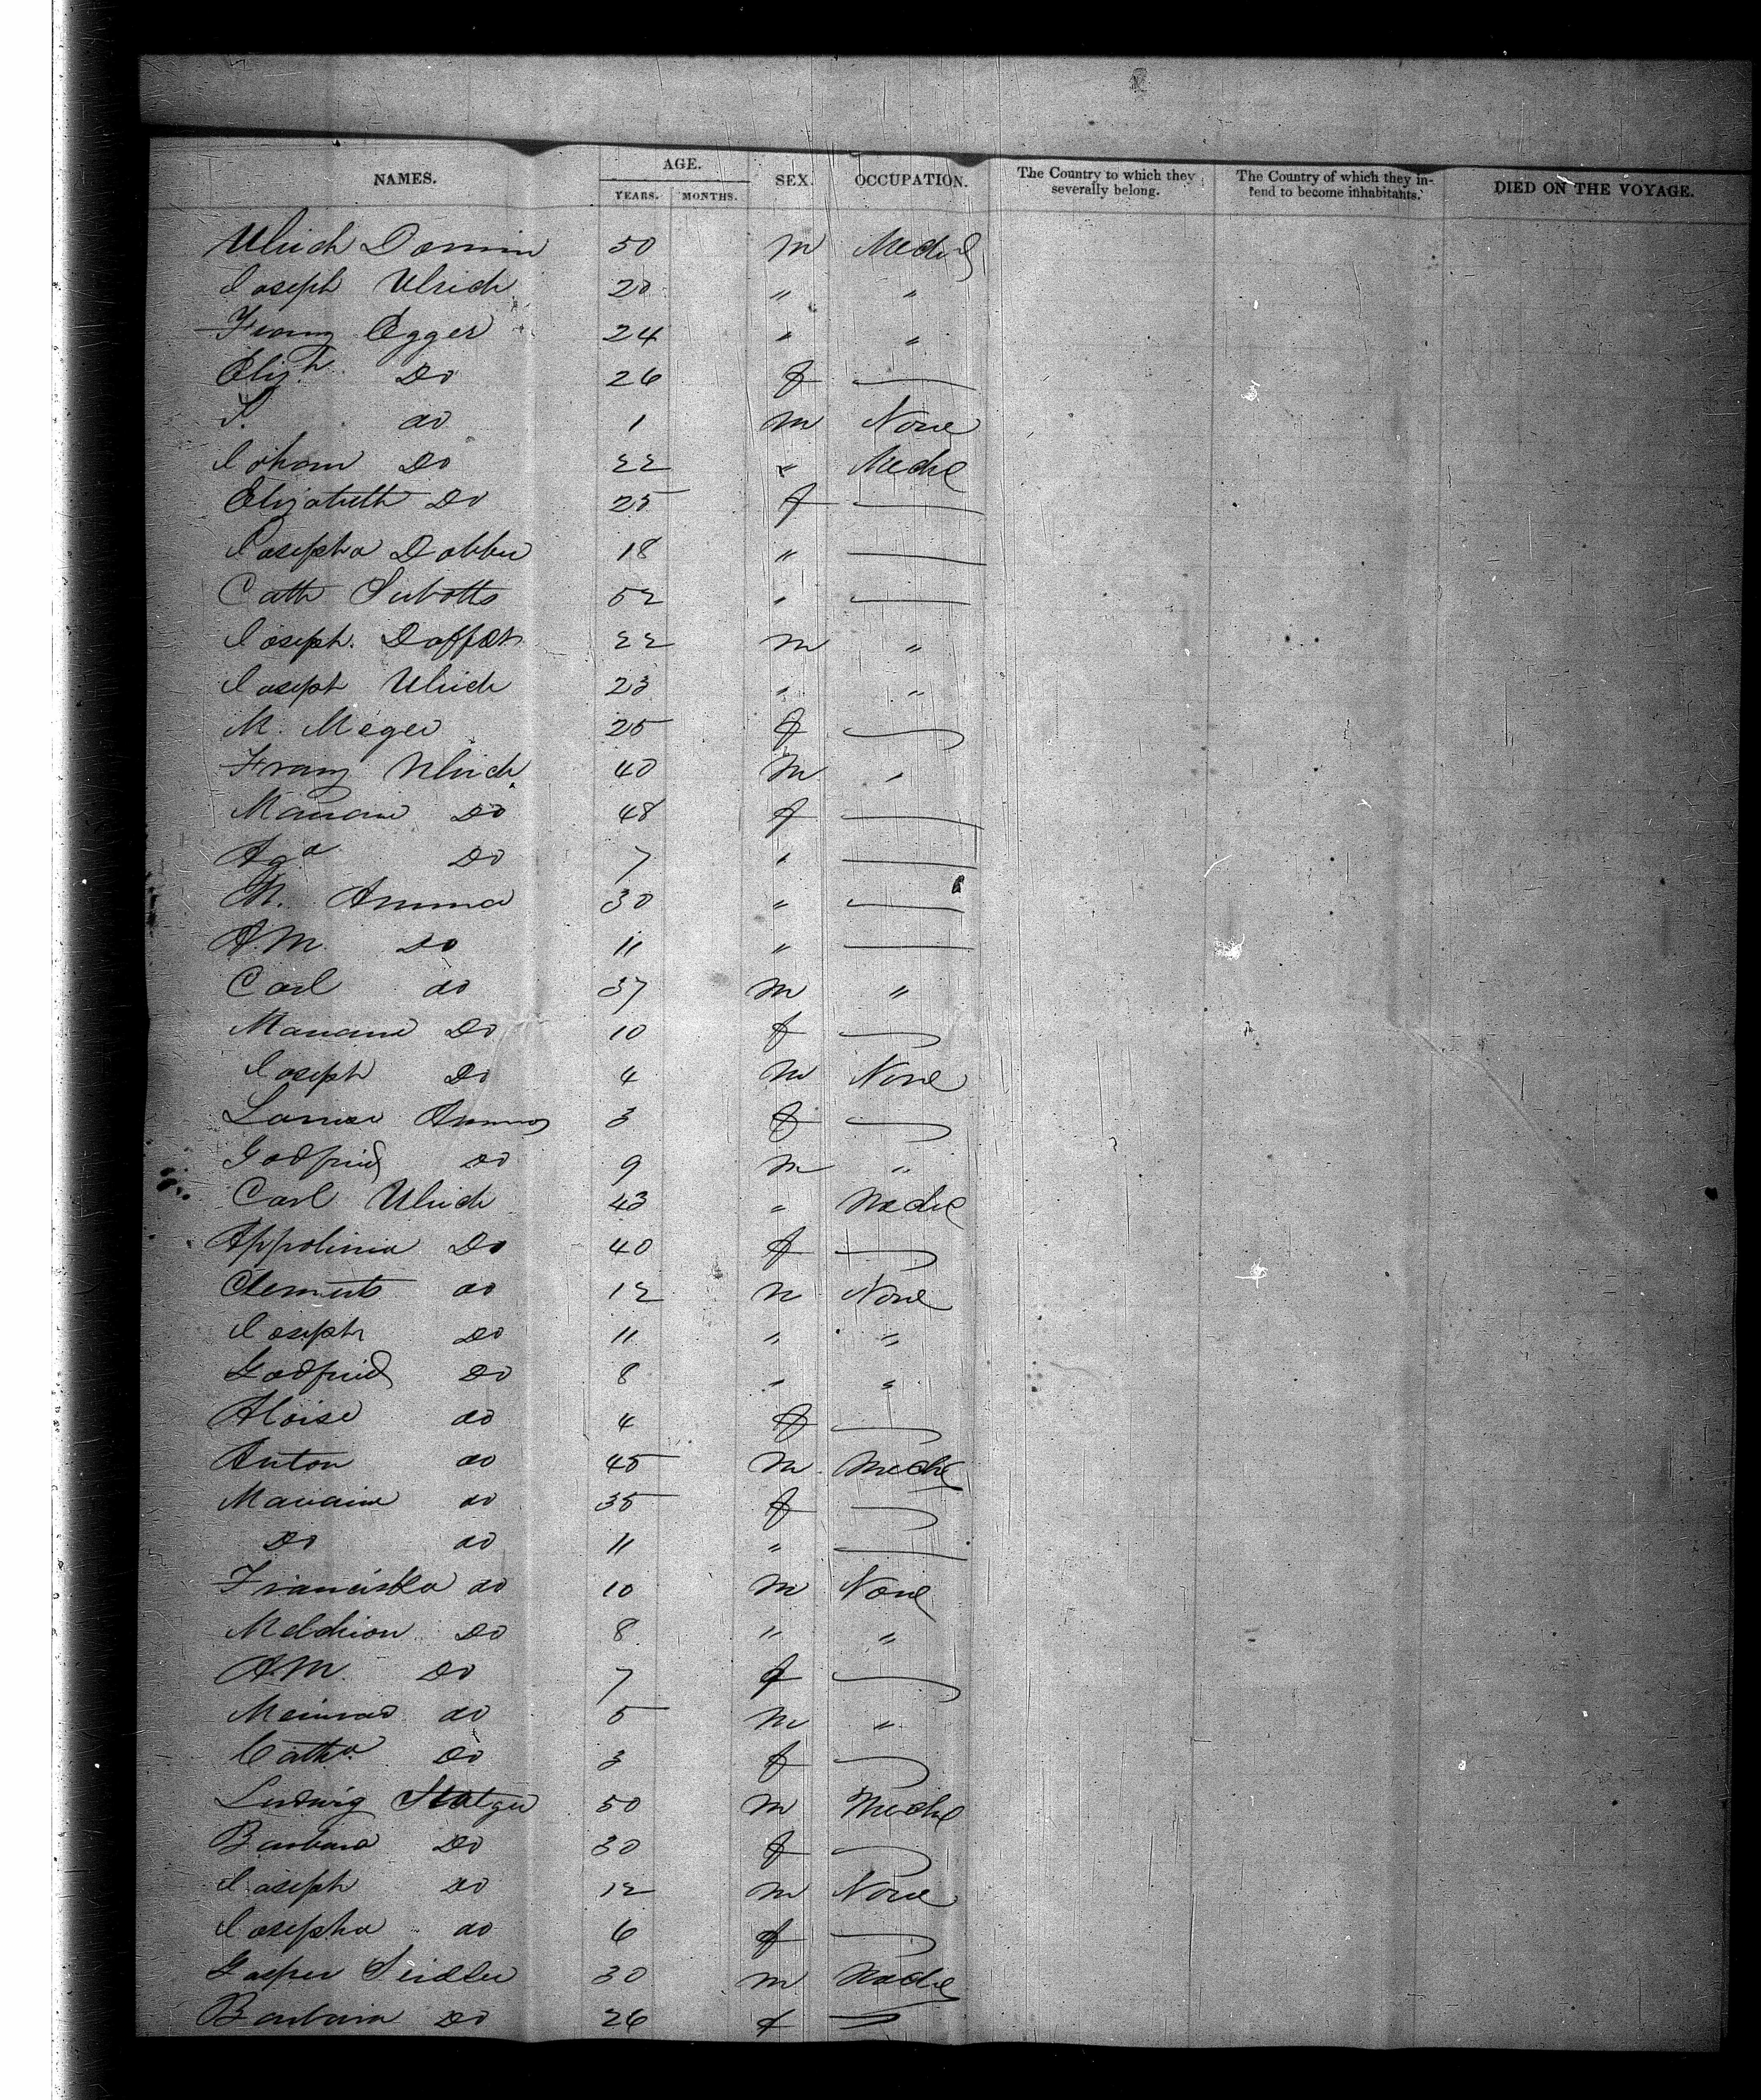 NAMES. AGE. SEX. OCCUPATION. The Country to which they severally belong. The Country of which they intend to become inhabitants. DIED ON THE VOYAGE.
YEARS. MONTHS.
Ulrich Domin 50 m Mech
Joseph Ulrich 20 " "
Franz Egger 24 " "
Elizh Do 26 f —
J. do 1 m None
Johann Do 22 " Mech
Elizabeth Do 25 f —
Josepha Dobber 18 " —
Cath 52 " —
Joseph 22 m "
Joseph Ulrich 23 " "
M. Meger 25 f —
Franz Ulrich 40 m "
Mariane Do 48 f —
Aga Do 7 " —
M. Amma 30 " —
A.M. Do 11 " —
Carl do 37 m "
Mariane Do 10 f —
Joseph Do 4 m None
Louise 3 f —
Godfried Do 9 m "
Carl Ulrich 43 " Mech
Appolinia Do 40 f —
Clements do 12 m None
Joseph Do 11 " "
Godfried Do 8 " "
Aloise do 4 f —
Anton do 45 m Mech
Mariane do 35 f —
Do do 11 " —
Franciska do 10 m None
Melchior Do 8 " "
A.M. Do 7 f —
Meinrad do 5 m "
Catha Do 3 f —
Ludwig 50 m Mech
Barbara Do 30 f —
Joseph Do 12 m None
Josepha do 6 f —
Gasper Seidler 30 m Mech
Barbara Do 26 f —